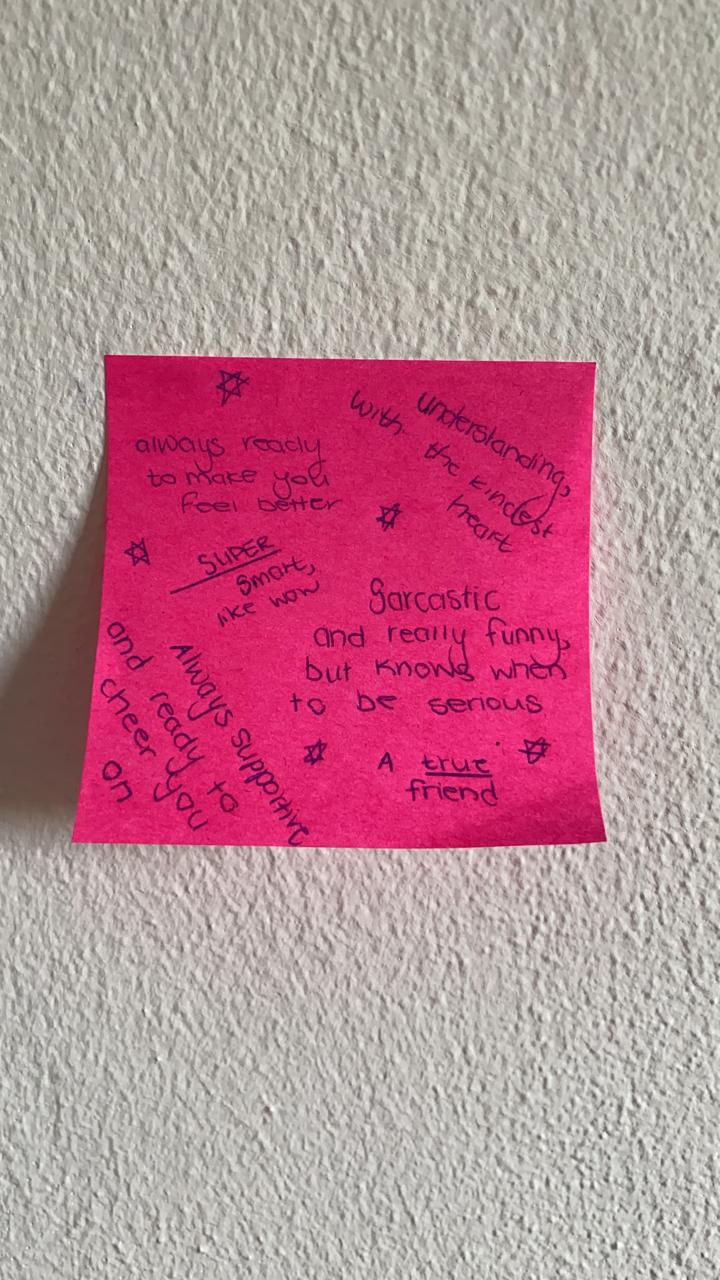 always ready
to make you
feel better
understanding,
with the kindest
heart
SUPER
smart,
like wow
Sarcastic
and really funny,
but knows when
to be serious
Always supportive
and ready to
cheer you
on
A true
friend